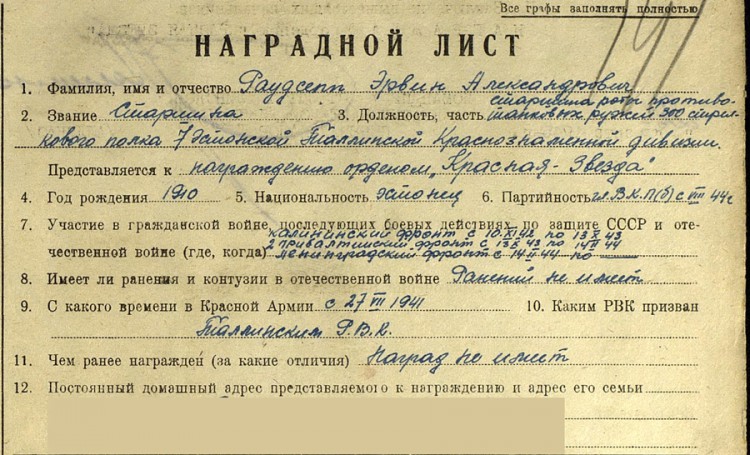 Все графы заполнять полностью
НАГРАДНОЙ ЛИСТ
1. Фамилия, имя и отчество Раудсепп Эрвин Александрович
2. Звание Старшина 3. Должность, часть старшина роты противо-
танковых ружей 300 стрел-
кового полка 7 Эстонской Таллинской Краснознаменной дивизии.
Представляется к награждению орденом „Красная-Звезда"
4. Год рождения 1910 5. Национальность эстонец 6. Партийность чл. В.К.П(б) с VIII 44г
7. Участие в гражданской войне, последующих боевых действиях по защите СССР и оте-
калининский фронт с 10.XI 42 по 13 X 43
2 прибалтийский фронт с 13 X 43 по 14 II 44
чественной войне (где, когда) ленинградский фронт с 14 II 44 по
8. Имеет ли ранения и контузии в отечественной войне Ранений не имеет
9. С какого времени в Красной Армии с 27 VII 1941 10. Каким РВК призван
Таллинским Р.В.К.
11. Чем ранее награжден (за какие отличия) Наград не имеет
12. Постоянный домашный адрес представляемого к награждению и адрес его семьи